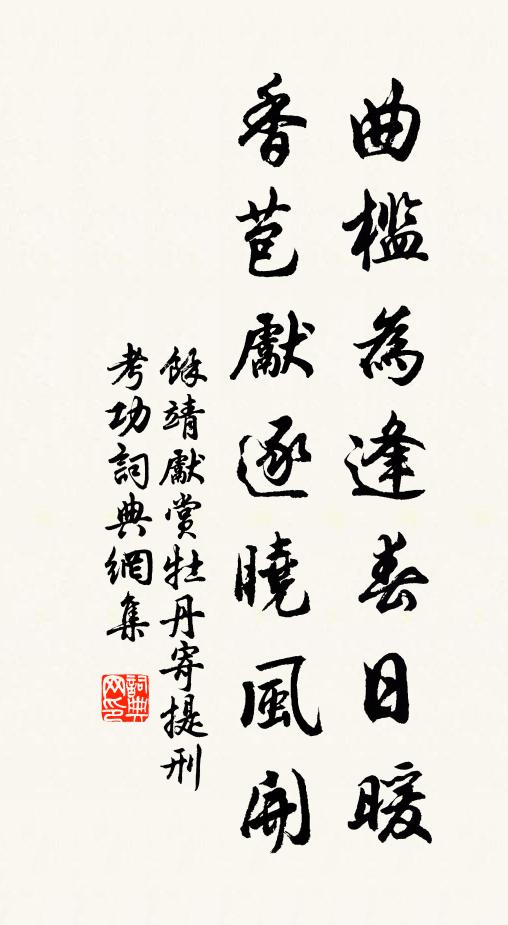 曲檻為逢春日暖
香苞獻逐曉風開
餘靖獻賞牡丹寄提刑
考功詞典網集
詞典
网印